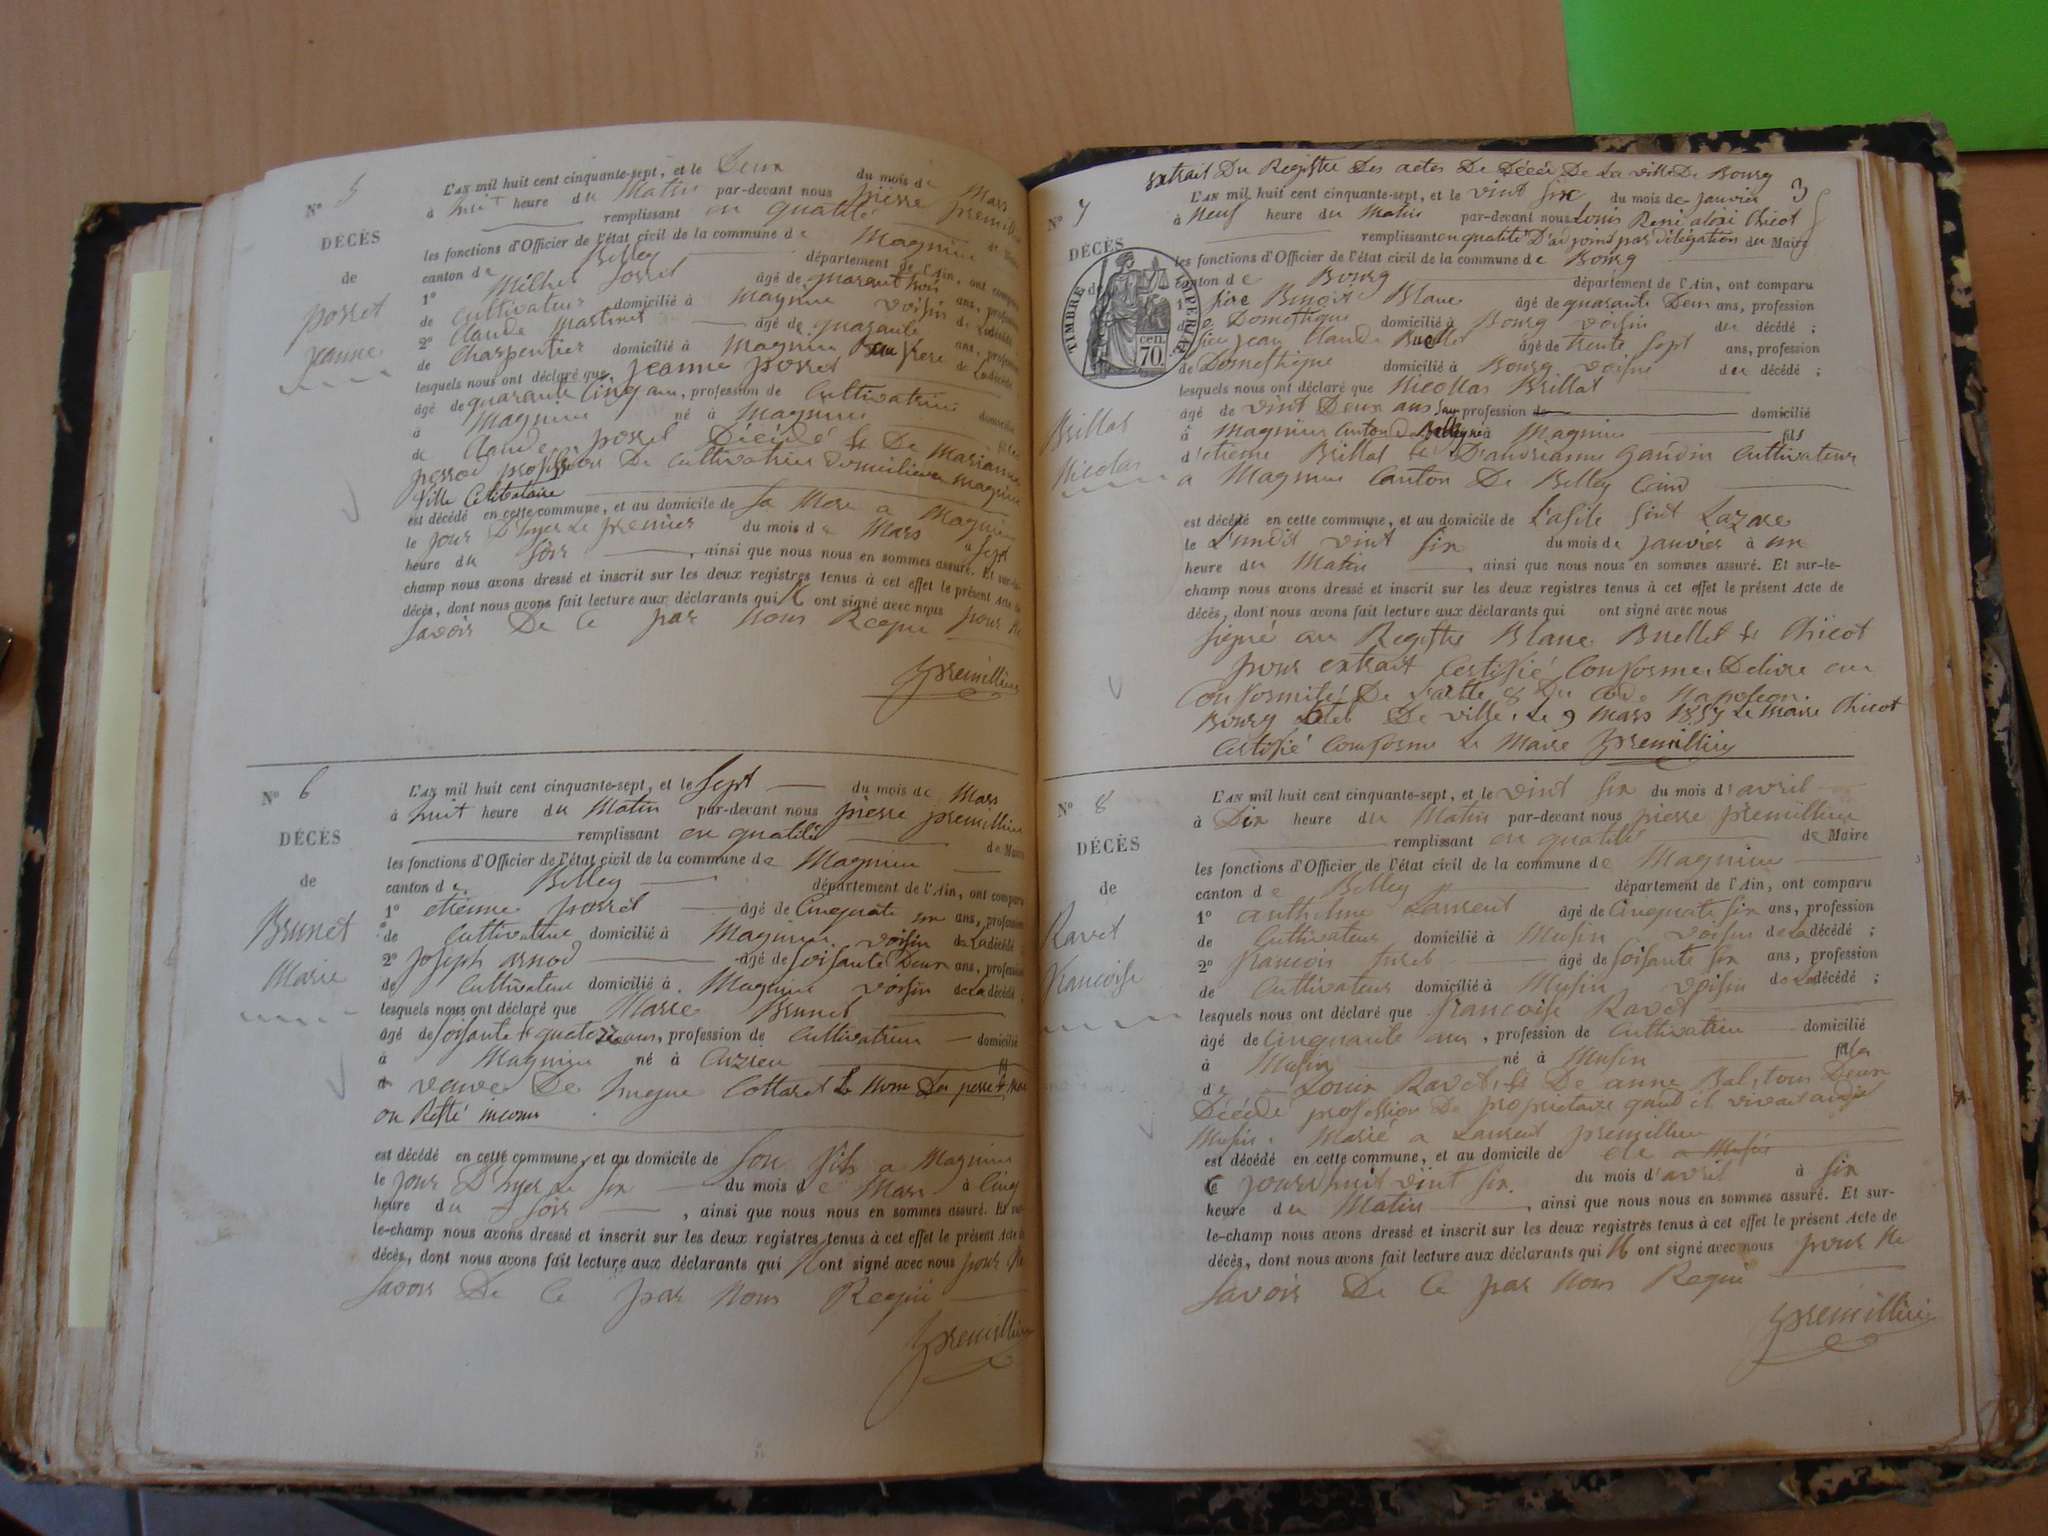 N° 5
DÉCÈS
de
porret
jeanne
L'AN mil huit cent cinquante-sept, et le Deux du mois de Mars
à huit heure du Matin par-devant nous pierre premillieu
remplissant en qualité de
les fonctions d'Officier de l'état civil de la commune de Magnieu
canton de Belley département de l'Ain, ont comparu
1° porret âgé de quarant trois ans, profession
de Cultivateur domicilié à Magnieu voisin de La décédé
2° Claude Martinet âgé de quarante ans, profession
de Charpentier domicilié à Magnieu Beau frere de La décédé
lesquels nous ont déclaré que jeanne porret
âgé de quarante Cinq ans, profession de Cultivatrice domicilié
à Magnieu né à Magnieu
de Claude porret Décédé et De Marianne
profession De Cultivatrice domicilié a magnieu
fille Celibataire
est décédé en cette commune, et au domicile de sa Mere a Magnieu
le jour D'hyer Le premier du mois de Mars à Sept
heure du Soir, ainsi que nous nous en sommes assuré. Et sur-le-
champ nous avons dressé et inscrit sur les deux registres tenus à cet effet le présent Acte de
décès, dont nous avons fait lecture aux déclarants qui N ont signé avec nous pour Ne
Savoir De Ce par Nous Requi
premillieu
N° 6
DÉCÈS
de
Brunet
Marie
L'AN mil huit cent cinquante-sept, et le Sept du mois de Mars
à huit heure du Matin par-devant nous pierre premillieu
remplissant en qualité de Maire
les fonctions d'Officier de l'état civil de la commune de Magnieu
canton de Belley département de l'Ain, ont comparu
1° etienne porret âgé de Cinquate six ans, profession
de Cultivateur domicilié à Magnieu voisin de La décédé
2° joseph arnod âgé de soisante Deux ans, profession
de Cultivateur domicilié à Magnieu voisin de La décédé
lesquels nous ont déclaré que Marie Brunet
âgé de soisante et quatorze ans, profession de Cultivatrice domicilié
à Magnieu né à Cuzieu
veuve De hugue Cottaret Le Nom Du perre et Mere
on Resté inconu
est décédé en cette commune, et au domicile de son fils a Magnieu
le jour D'hyer Le six du mois de Mars à Cinq
heure du soir, ainsi que nous nous en sommes assuré. Et sur-
le-champ nous avons dressé et inscrit sur les deux registres tenus à cet effet le présent Acte de
décès, dont nous avons fait lecture aux déclarants qui N ont signé avec nous pour Ne
Savoir De Ce par Nous Requi
premillieu
extrait Du Registre Des actes De Décés De La ville De Bourg
3
N° 7
DÉCÈS
de
Brillat
Nicolas
TIMBRE IMPERIAL
70 cen.
L'AN mil huit cent cinquante-sept, et le vint six du mois de janvier
à Neuf heure du Matin par-devant nous Louis René alexi Chicot
remplissant en qualité D'adjoint par délégation du Maire
les fonctions d'Officier de l'état civil de la commune de Bourg
canton de Bourg département de l'Ain, ont comparu
Benoit Blanc âgé de quarante Deux ans, profession
de Domestique domicilié à Bourg voisin du décédé ;
jean Claude Buellet âgé de trente sept ans, profession
de Domestique domicilié à Bourg voisin du décédé ;
lesquels nous ont déclaré que Nicollas Brillat
âgé de vint Deux ans san profession de domicilié
à Magnieu Canton De Belley né à Magnieu fils
d'etienne Brillat et D'andrianne gandin Cultivateur
a Magnieu Canton De Belley
est décédé en cette commune, et au domicile de L'asile Sint Lazare
le Lundit vint six du mois de janvier à un
heure du Matin, ainsi que nous nous en sommes assuré. Et sur-le-
champ nous avons dressé et inscrit sur les deux registres tenus à cet effet le présent Acte de
décès, dont nous avons fait lecture aux déclarants qui ont signé avec nous
signé au Registre Blanc Buellet et Chicot
pour extrait Certifié Conforme Delivre en
Conformité De Code Napoleon
Bourg De ville, Le 9 mars 1857 Le maire Chicot
Certifié Conforme Le Maire premillieu
N° 8
DÉCÈS
de
Ravet
francoise
L'AN mil huit cent cinquante-sept, et le vint six du mois d'avril
à Dix heure du Matin par-devant nous pierre premillieu
remplissant en qualité de Maire
les fonctions d'Officier de l'état civil de la commune de Magnieu
canton de Belley département de l'Ain, ont comparu
1° anthelme Laurent âgé de Cinquate six ans, profession
de Cultivateur domicilié à Musin voisin de La décédé ;
2° francois âgé de soisante six ans, profession
de Cultivateur domicilié à Musin voisin de La décédé ;
lesquels nous ont déclaré que francoise Ravet
âgé de Cinquante ans, profession de Cultivatrice domicilié
à Musin né à Musin
de Louis Ravet, et De anne Bal, tous Deux
Décédé profession De propriétaire quand il vivait
Musin. Marié a Laurent premillieu
est décédé en cette commune, et au domicile de
Ce jourdhuit vint six du mois d'avril à six
heure du Matin, ainsi que nous nous en sommes assuré. Et sur-
le-champ nous avons dressé et inscrit sur les deux registres tenus à cet effet le présent Acte de
décès, dont nous avons fait lecture aux déclarants qui N ont signé avec nous pour Ne
Savoir De Ce par Nous Requi
premillieu